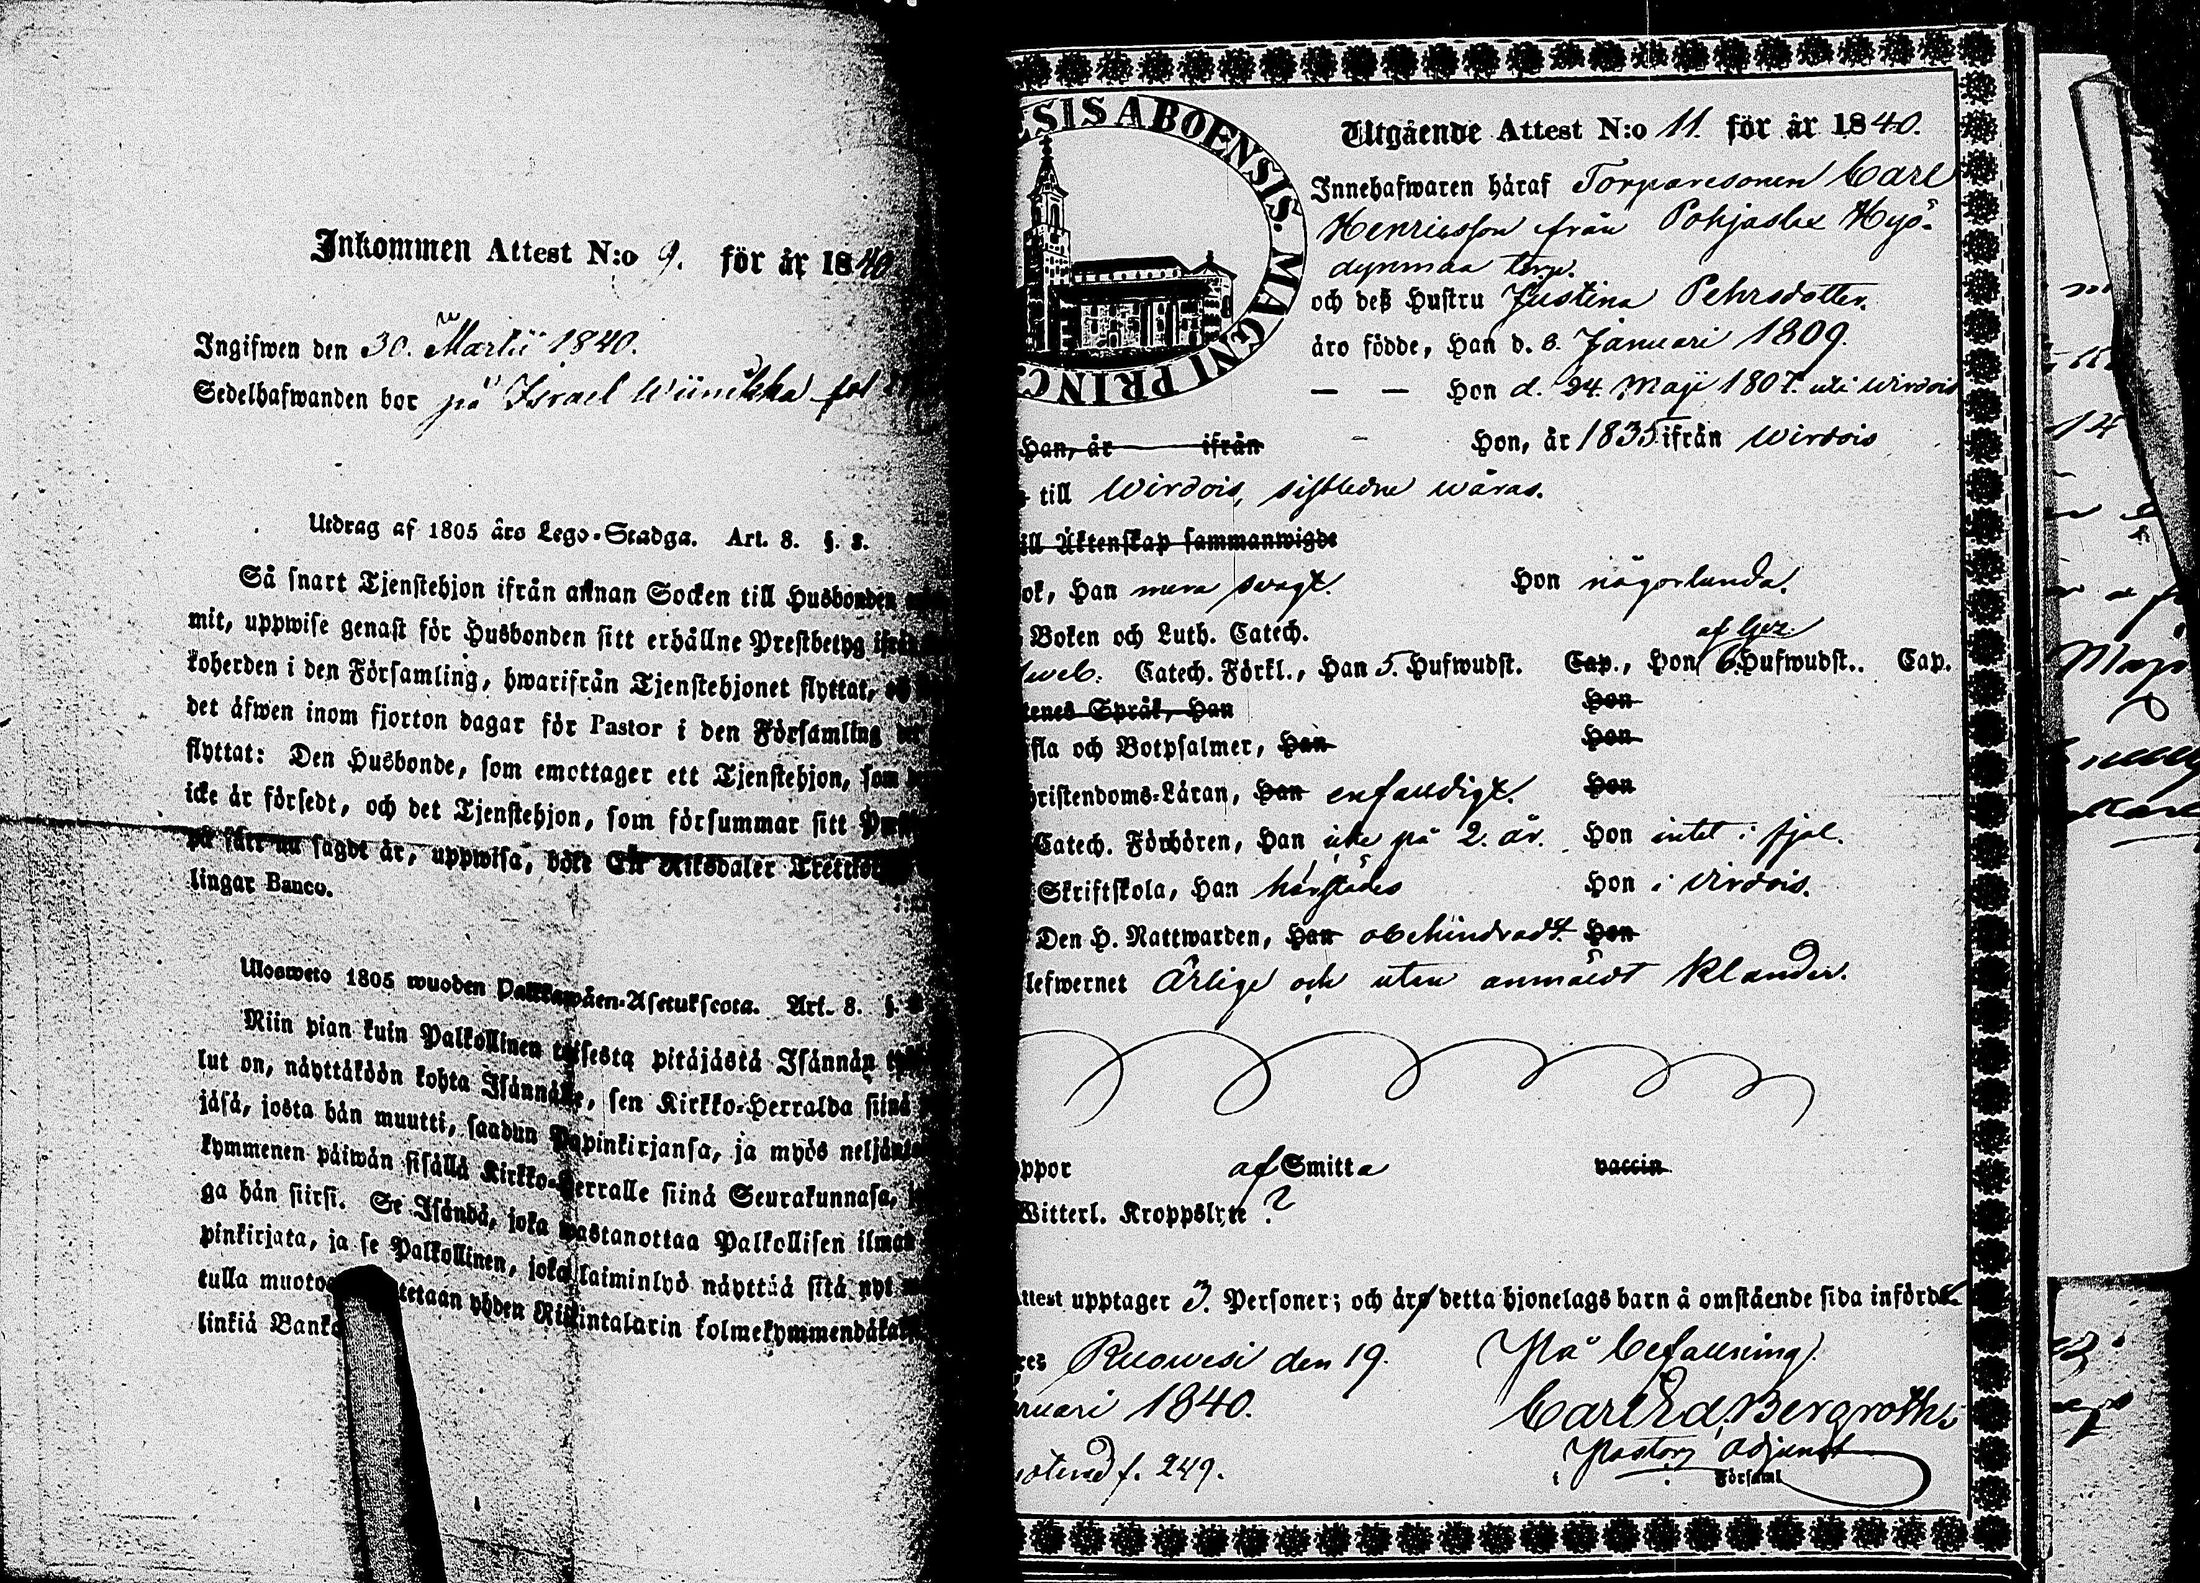 Inkommen Attest N:o 9. för år 1840
Ingifwen den 30. Martii 1840.
Sedelhafwanden bor på Israel Wiinikka fol
Utdrag af 1805 års Lego-Stadga. Art. 8. §. 8.
Så snart Tjenstehjon ifrån annan Socken till Husbonden
mit, uppwise genast för Husbonden sitt erhållne Prestbetyg ifrån
koherden i den Församling, hwarifrån Tjenstehjonet flyttat,
det äfwen inom fjorton dagar för Pastor i den Församling
flyttat: Den Husbonde, som emottager ett Tjenstehjon, som
icke är försedt, och det Tjenstehjon, som försummar sitt
på sätt nu sagdt är, uppwisa, böte En Riksdaler Trettio
lingar Banco.
Uloswето 1805 wuoden Palkkawäen-Asetuksesta. Art. 8. §.
Niin pian kuin Palkollinen toisesta pitäjästä Isännän
lut on, näyttäköön kohta Isännälle, sen Kirkko-Herralda siinä
jäsä, josta hän muutti, saadun Papinkirjansa, ja myös neljän
kymmenen päiwän sisällä Kirkko-Herralle siinä Seurakunnasa,
ga hän siirsi. Se Isändä, joka wastanottaa Palkollisen ilman
pinkirjata, ja se Palkollinen, joka laiminlyö näyttää sitä nyt
tulla muoto tetaan yhden Riksintalarin kolmekymmendäkah
linkiä Banko
ESIS ABOENSIS. MAGNI PRINC.
Utgående Attest N:o 11. för år 1840.
Innehafwaren häraf Torparesonen Carl
Henricsson från Pohjaslax Hyö-
dynmaa torp.
och deß Hustru Justina Pehrsdotter.
äro födde, Han d. 8. Januari 1809.
— — Hon d. 24. Maji 1807. uti Wirdois
Han, år ifrån - Hon, år 1835 ifrån Wirdois
till Wirdois, sistledne wåras.
ill Äktenskap sammanwigde
ok, Han mera swagt. Hon någorlunda.
Boken och Luth. Catech.
af Gez.
Sweb. Catech. Förkl., Han 5. Hufwudst. Cap., Hon 6. Hufwudst.. Cap.
tenes Språk, Han Hon
sla och Botpsalmer, Han Hon
hristendoms-Läran, Han enfaldigt. Hon
Catech. Förhören, Han icke på 2. år. Hon intet i fjol.
Skriftskola, Han härstädes Hon i Virdois.
Den H. Nattwarden, Han obehindradt. Hon
lefwernet Ärlige och utan anmäldt klander.
ppor af Smitta vaccin
Witterl. Kroppslyte ?
Attest upptager 3. Personer; och äro detta hjonelags barn å omstående sida införde.
res Ruowesi den 19. På befallning
ruari 1840. Carl Ed. Bergroth
noterad f. 249. Pastors Adjunct
i Församl